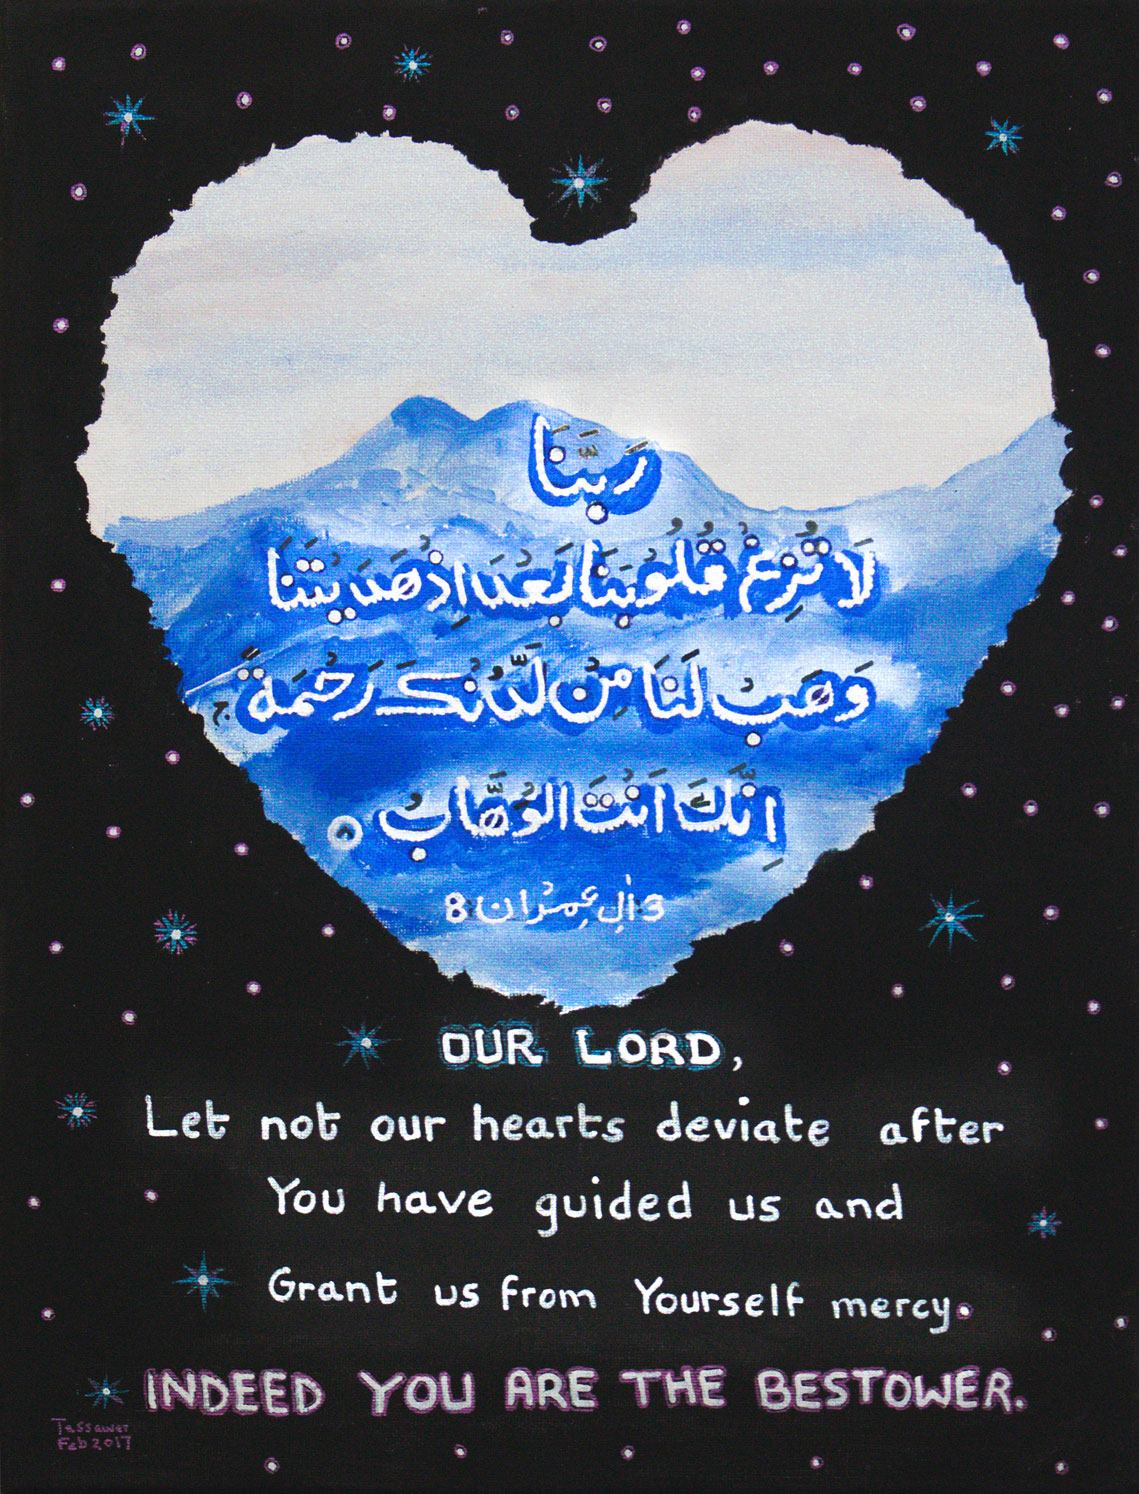 رَبَّنَا
لَا تُزِغْ قُلُوْبَنَا بَعْدَ اِذْ هَدَيْتَنَا
وَهَبْ لَنَا مِنْ لَّدُنْكَ رَحْمَةً ج
اِنَّكَ اَنْتَ الْوَهَّابُ ٨
3 اٰلِ عِمْرٰان 8
OUR LORD,
Let not our hearts deviate after
You have guided us and
Grant us from Yourself mercy.
INDEED YOU ARE THE BESTOWER.
Tassawer
Feb 2017